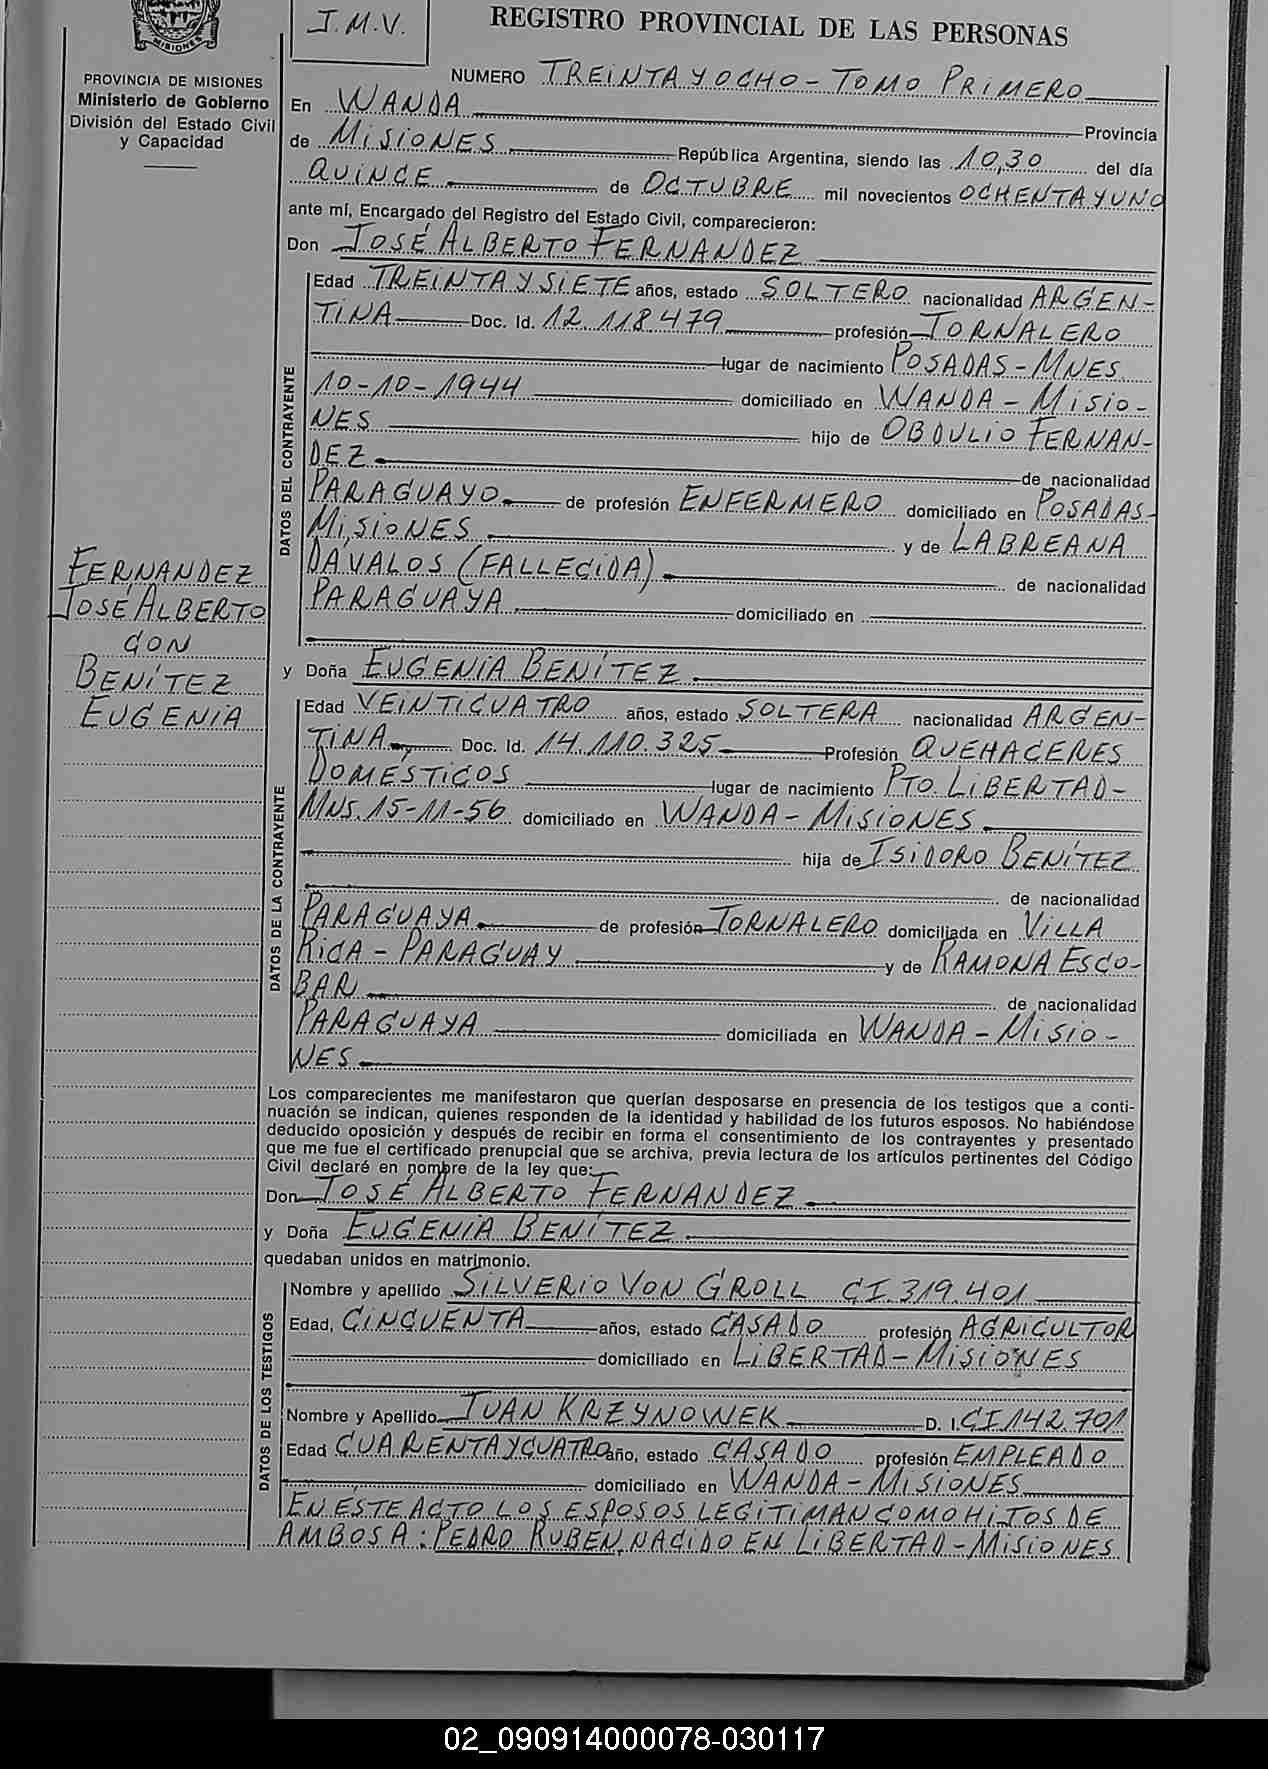 MISIONES
J.M.V.
REGISTRO PROVINCIAL DE LAS PERSONAS
PROVINCIA DE MISIONES
Ministerio de Gobierno
División del Estado Civil
y Capacidad
NUMERO TREINTA Y OCHO - TOMO PRIMERO
En WANDA Provincia
de MISIONES República Argentina, siendo las 10,30 del día
QUINCE de OCTUBRE mil novecientos OCHENTA Y UNO
ante mí, Encargado del Registro del Estado Civil, comparecieron:
Don JOSÉ ALBERTO FERNANDEZ
DATOS DEL CONTRAYENTE
Edad TREINTA Y SIETE años, estado SOLTERO nacionalidad ARGEN-
TINA Doc. Id. 12.118.479 profesión JORNALERO
lugar de nacimiento POSADAS - MNES
10-10-1944 domiciliado en WANDA - MISIO-
NES hijo de OBDULIO FERNAN-
DEZ de nacionalidad
PARAGUAYO de profesión ENFERMERO domiciliado en POSADAS-
MISIONES y de LABREANA
DÁVALOS (FALLECIDA) de nacionalidad
PARAGUAYA domiciliado en
FERNANDEZ
JOSÉ ALBERTO
CON
BENÍTEZ
EUGENIA
y Doña EUGENIA BENÍTEZ
DATOS DE LA CONTRAYENTE
Edad VEINTICUATRO años, estado SOLTERA nacionalidad ARGEN-
TINA Doc. Id. 14.110.325 Profesión QUEHACERES
DOMÉSTICOS lugar de nacimiento PTO. LIBERTAD-
MNS. 15-11-56 domiciliado en WANDA - MISIONES
hija de ISIDORO BENÍTEZ
de nacionalidad
PARAGUAYA de profesión JORNALERO domiciliada en VILLA
RICA - PARAGUAY y de RAMONA ESCO-
BAR de nacionalidad
PARAGUAYA domiciliada en WANDA - MISIO-
NES
Los comparecientes me manifestaron que querían desposarse en presencia de los testigos que a conti-
nuación se indican, quienes responden de la identidad y habilidad de los futuros esposos. No habiéndose
deducido oposición y después de recibir en forma el consentimiento de los contrayentes y presentado
que me fue el certificado prenupcial que se archiva, previa lectura de los artículos pertinentes del Código
Civil declaré en nombre de la ley que:
Don JOSÉ ALBERTO FERNANDEZ
y Doña EUGENIA BENÍTEZ
quedaban unidos en matrimonio.
DATOS DE LOS TESTIGOS
Nombre y apellido SILVERIO VON GROLL CI. 319.401
Edad, CINCUENTA años, estado CASADO profesión AGRICULTOR
domiciliado en LIBERTAD - MISIONES
Nombre y Apellido JUAN KRZYNOWEK D. I. CI 142.701
Edad CUARENTA Y CUATRO año, estado CASADO profesión EMPLEADO
domiciliado en WANDA - MISIONES
EN ÉSTE ACTO LOS ESPOSOS LEGITIMAN COMO HIJOS DE
AMBOS A: PEDRO RUBEN, NACIDO EN LIBERTAD - MISIONES
02_090914000078-030117